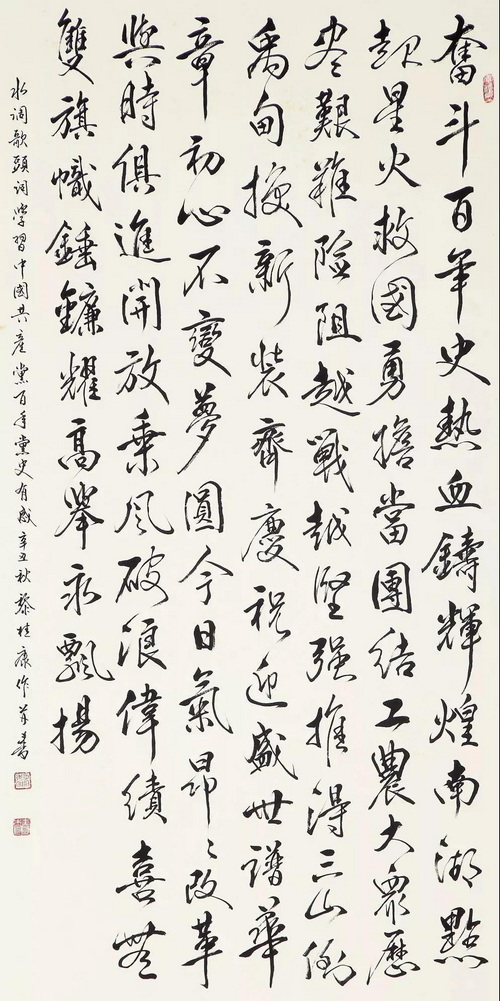 奮斗百年史熱血鑄輝煌南湖點
起星火救國勇擔當團結工農大眾歷
盡艱難險阻越戰越堅强推得三山倒
禹甸換新裝齊慶祝迎盛世譜華
章初心不變夢圓今日氣昂〻改革
與時俱進開放乘风破浪偉績喜無
雙旗幟錘鐮耀高舉永飄揚
水调歌頭词學習中國共產黨百年黨史有感辛丑秋黎桂康作并書